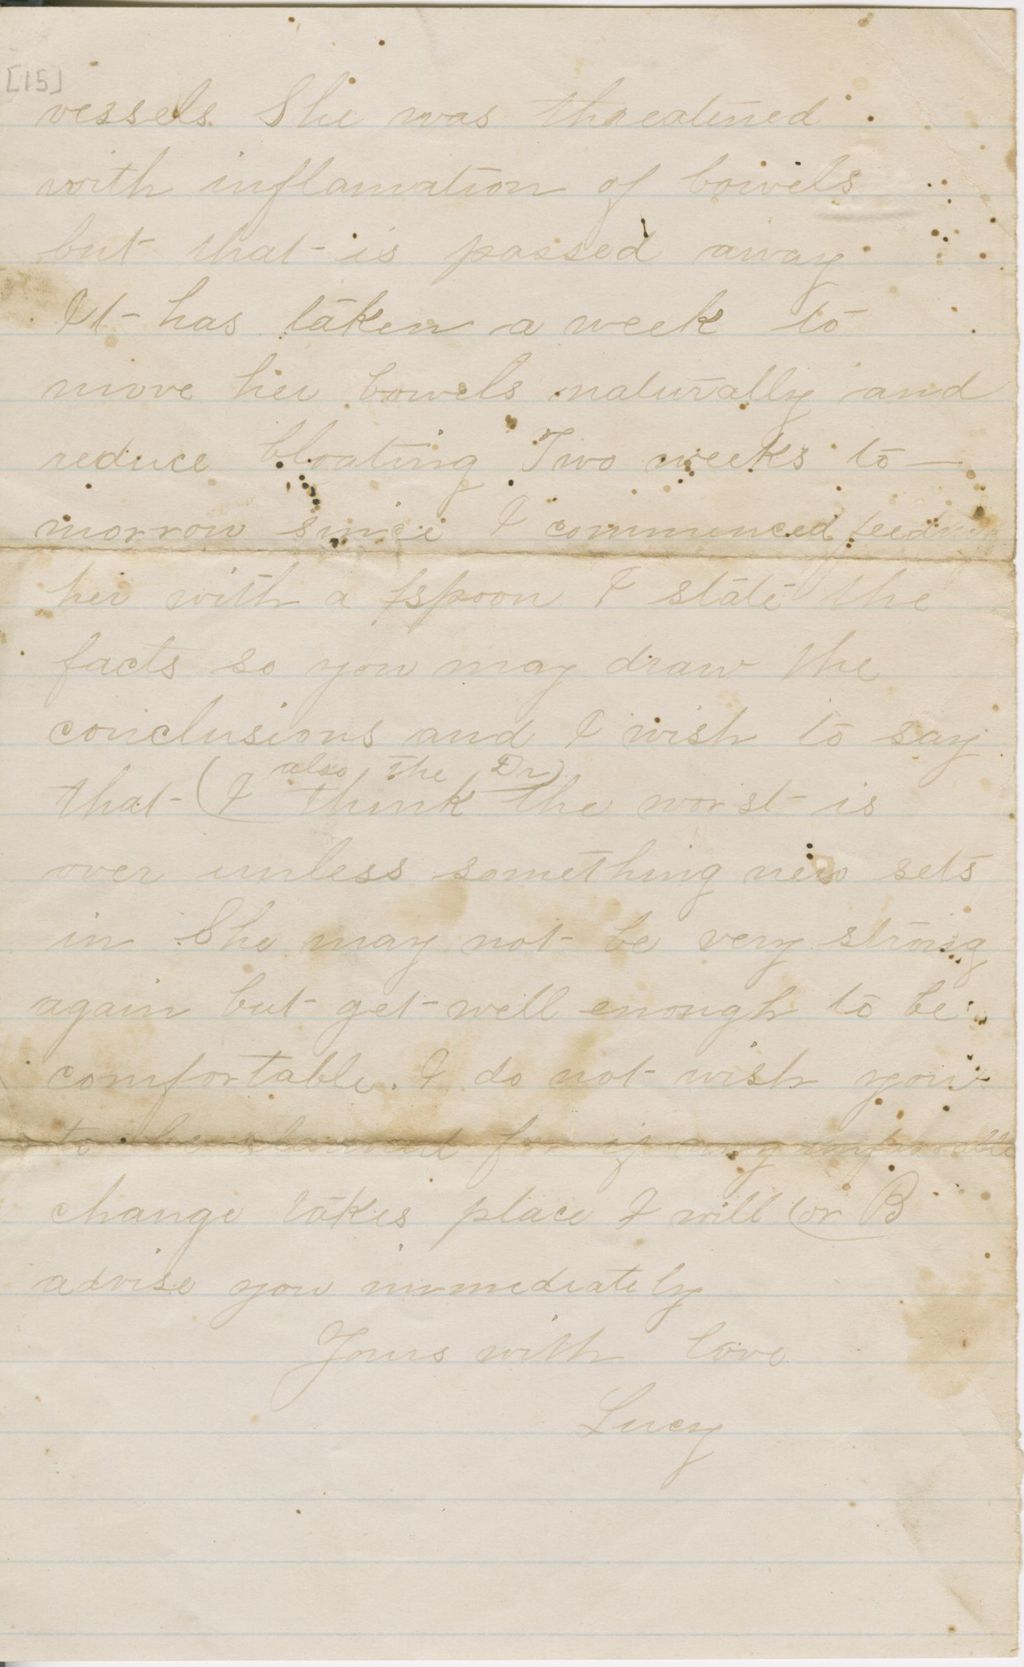 [15]
vessels She was threatened
with inflamation of bowels
but that is passed away
It has taken a week to
move her bowels naturally and
reduce bloating Two weeks to-
morrow since I commenced feeding
her with a spoon I state the
facts so you may draw the
conclusions and I wish to say
also the Dr)
that (I think the worst is
over unless something new sets
in She may not be very strong
again but get well enough to be
comfortable. I do not wish you
to be alarmed for if any unfavorable
change takes place I will (or B
advise you immediately
Yours with love
Lucy